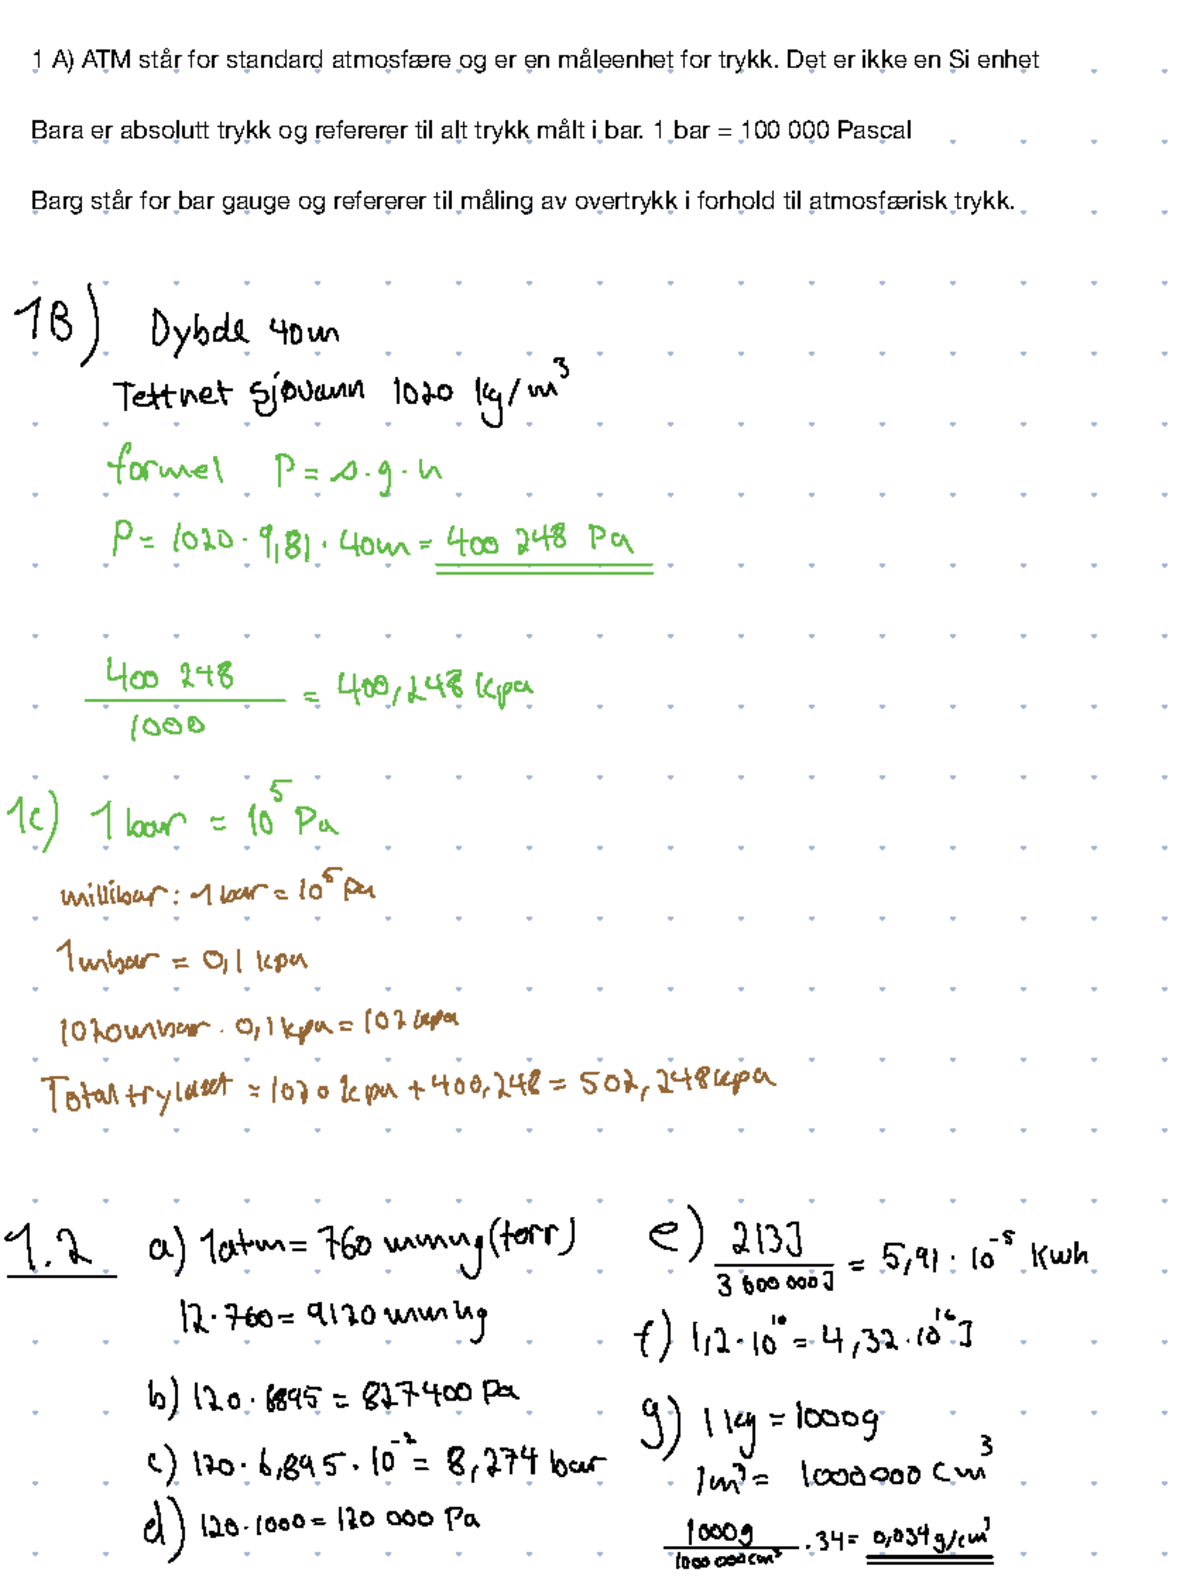 1 A) ATM står for standard atmosfære og er en måleenhet for trykk. Det er ikke en Si enhet
Bara er absolutt trykk og refererer til alt trykk målt i bar. 1 bar = 100 000 Pascal
Barg står for bar gauge og refererer til måling av overtrykk i forhold til atmosfærisk trykk.
1B) Dybde 40m
Tetthet sjøvann 1020 kg/m³
formel P = s·g·h
P = 1020 · 9,81 · 40m = 400 248 Pa
400 248 / 1000 = 400,248 Kpa
1c) 1 bar = 10⁵ Pa
millibar: 1 bar = 10⁵ pa
1 mbar = 0,1 kpa
1020 mbar · 0,1 kpa = 102 kpa
Total trykket = 1020 kpa + 400,248 = 502,248 kpa
1.2 a) 1atm = 760 mmHg (torr)
12 · 760 = 9120 mmHg
b) 120 · 6895 = 827400 Pa
c) 120 · 6,895 · 10⁻² = 8,274 bar
d) 120 · 1000 = 120 000 Pa
e) 213J / 3 600 000J = 5,91 · 10⁻⁵ Kwh
f) 1,2 · 10¹⁰ = 4,32 · 10¹⁶ J
g) 1 kg = 1000g
1m³ = 1000000 cm³
1000g / 1000 000cm³ · 34 = 0,034 g/cm³